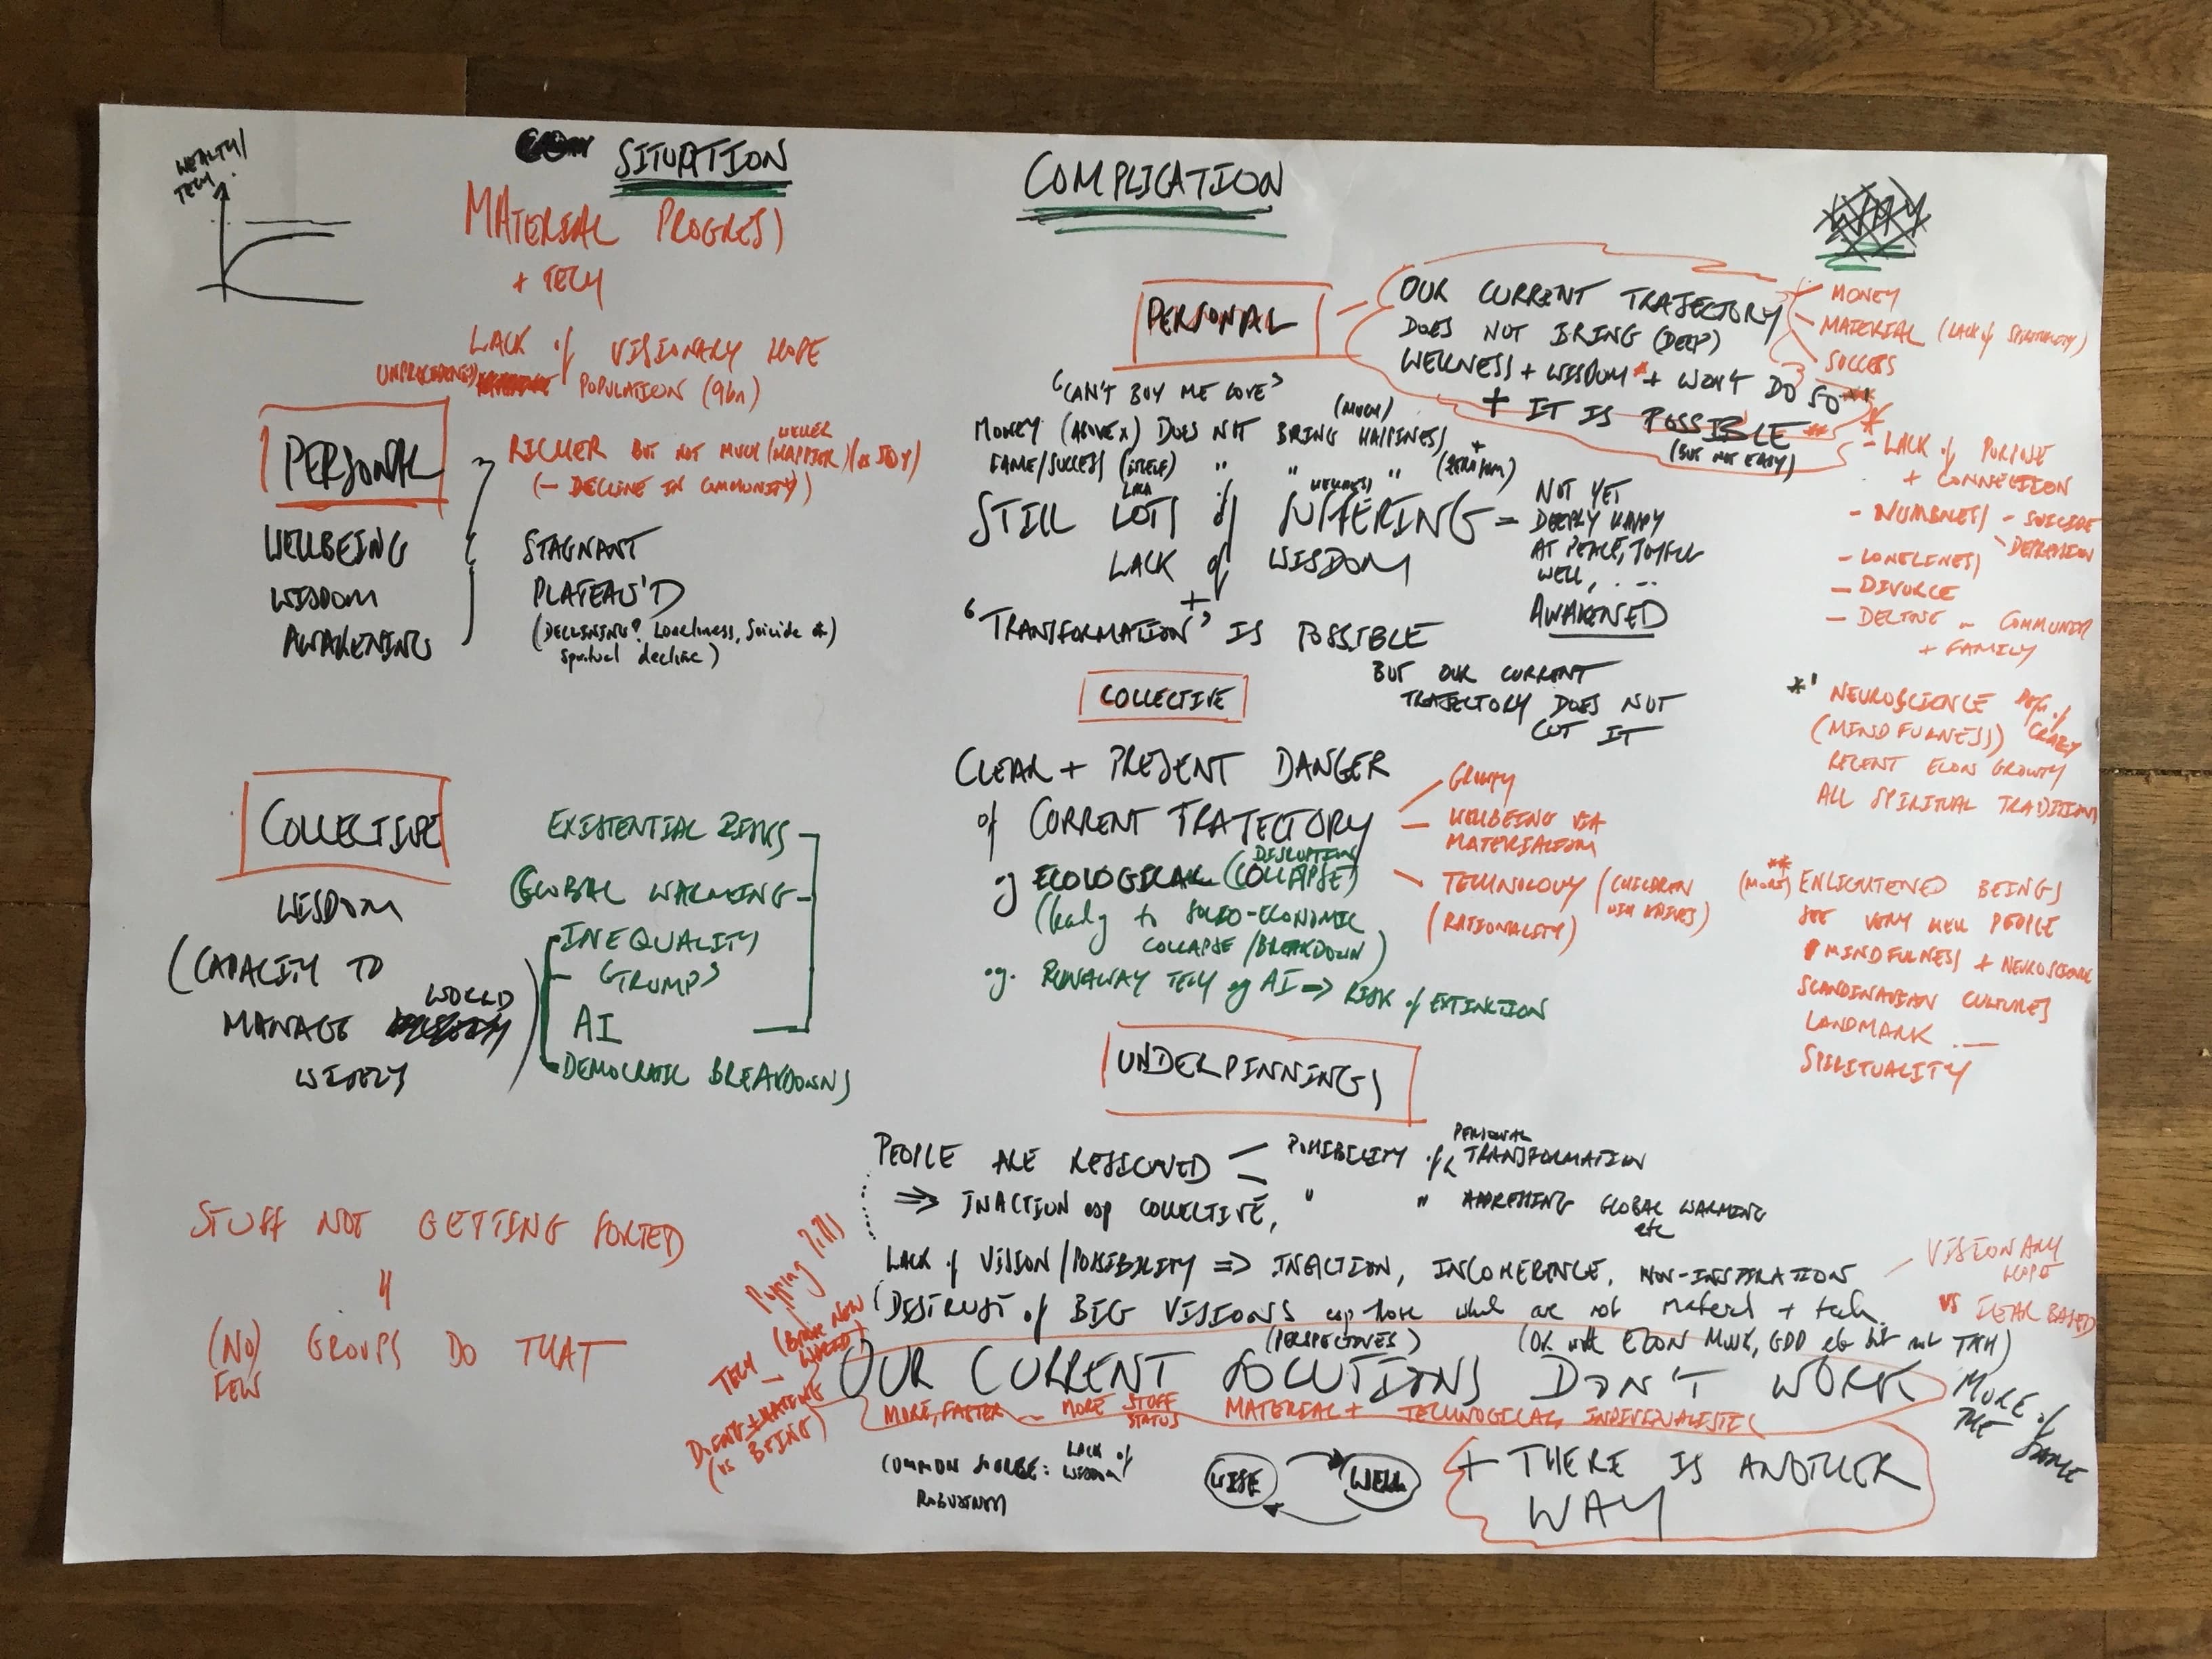 WEALTH/
TECH
SITUATION
MATERIAL PROGRESS
+ TECH
LACK of VISIONARY HOPE
UNPRECEDENTED POPULATION (9bn)
PERSONAL
RICHER BUT NOT MUCH HAPPIER
(- DECLINE IN COMMUNITY)
WELLBEING
WISDOM
AWAKENING
STAGNANT
PLATEAU'D
(DECLINING? Loneliness, Suicide
spiritual decline)
COLLECTIVE
WISDOM
(CAPACITY TO
MANAGE WORLD
WISELY)
EXISTENTIAL RISKS
GLOBAL WARMING
INEQUALITY
'TRUMP'
AI
DEMOCRATIC BREAKDOWNS
STUFF NOT GETTING SORTED
(NO) GROUPS DO THAT
FEW
COMPLICATION
PERSONAL
OUR CURRENT TRAJECTORY
DOES NOT BRING (DEEP)
WELLNESS + WISDOM* + WON'T DO SO**
+ IT IS POSSIBLE**
(BUT NOT EASY)
- MONEY
- MATERIAL (LACK of SPIRITUALITY)
- SUCCESS
"CAN'T BUY ME LOVE"
MONEY (ABOVE X) DOES NOT BRING (MUCH) HAPPINESS
FAME/SUCCESS " " "
STILL LOTS of SUFFERING =
NOT YET
DEEPLY HAPPY
AT PEACE, JOYFUL
WELL, ...
AWAKENED
LACK of WISDOM
+
"TRANSFORMATION" IS POSSIBLE
BUT OUR CURRENT
TRAJECTORY DOES NOT
CUT IT
*
- LACK of PURPOSE
+ CONNECTION
- NUMBNESS - SUICIDE
- DEPRESSION
- LONELINESS
- DIVORCE
- DECLINE - COMMUNITY
+ FAMILY
*' NEUROSCIENCE
(MINDFULNESS) CRAZY
RECENT ECON GROWTH
ALL SPIRITUAL TRADITIONS
**
(MORE) ENLIGHTENED BEINGS
SEE VERY WELL PEOPLE
MINDFULNESS + NEUROSCIENCE
SCANDINAVIAN CULTURES
LANDMARK ...
SPIRITUALITY
COLLECTIVE
CLEAR + PRESENT DANGER
of CURRENT TRAJECTORY
- GROWTH
- WELLBEING VIA
MATERIALISM
- TECHNOLOGY (CHILDREN
WITH KNIVES)
(RATIONALITY)
eg ECOLOGICAL DISRUPTION (COLLAPSE)
(leading to SOCIO-ECONOMIC
COLLAPSE/BREAKDOWN)
eg. RUNAWAY TECH eg AI => RISK of EXTINCTION
UNDERPINNINGS
PEOPLE ARE RESIGNED - POSSIBILITY of PERSONAL TRANSFORMATION
=> INACTION esp COLLECTIVE, " " ADDRESSING GLOBAL WARMING
etc
LACK of VISION/POSSIBILITY => INACTION, INCOHERENCE, NON-INSPIRATION
- VISIONARY
HOPE
VS FEAR BASED
(DISTRUST of BIG VISIONS esp those which are not material + tech
(PERSPECTIVES)
(OK with ECON MUSK, GDP etc but not TAH)
OUR CURRENT SOLUTIONS DON'T WORK
MORE of
THE
SAME
MORE, FASTER - MORE STUFF STATUS MATERIAL + TECHNOLOGICAL, INDIVIDUALISTIC
Popping Pills
(BRAVE NEW
WORLD)
TECH -
DOING
(vs BEING)
COMMON SOURCE: LACK of WISDOM
WISE
WELL
+ THERE IS ANOTHER
WAY